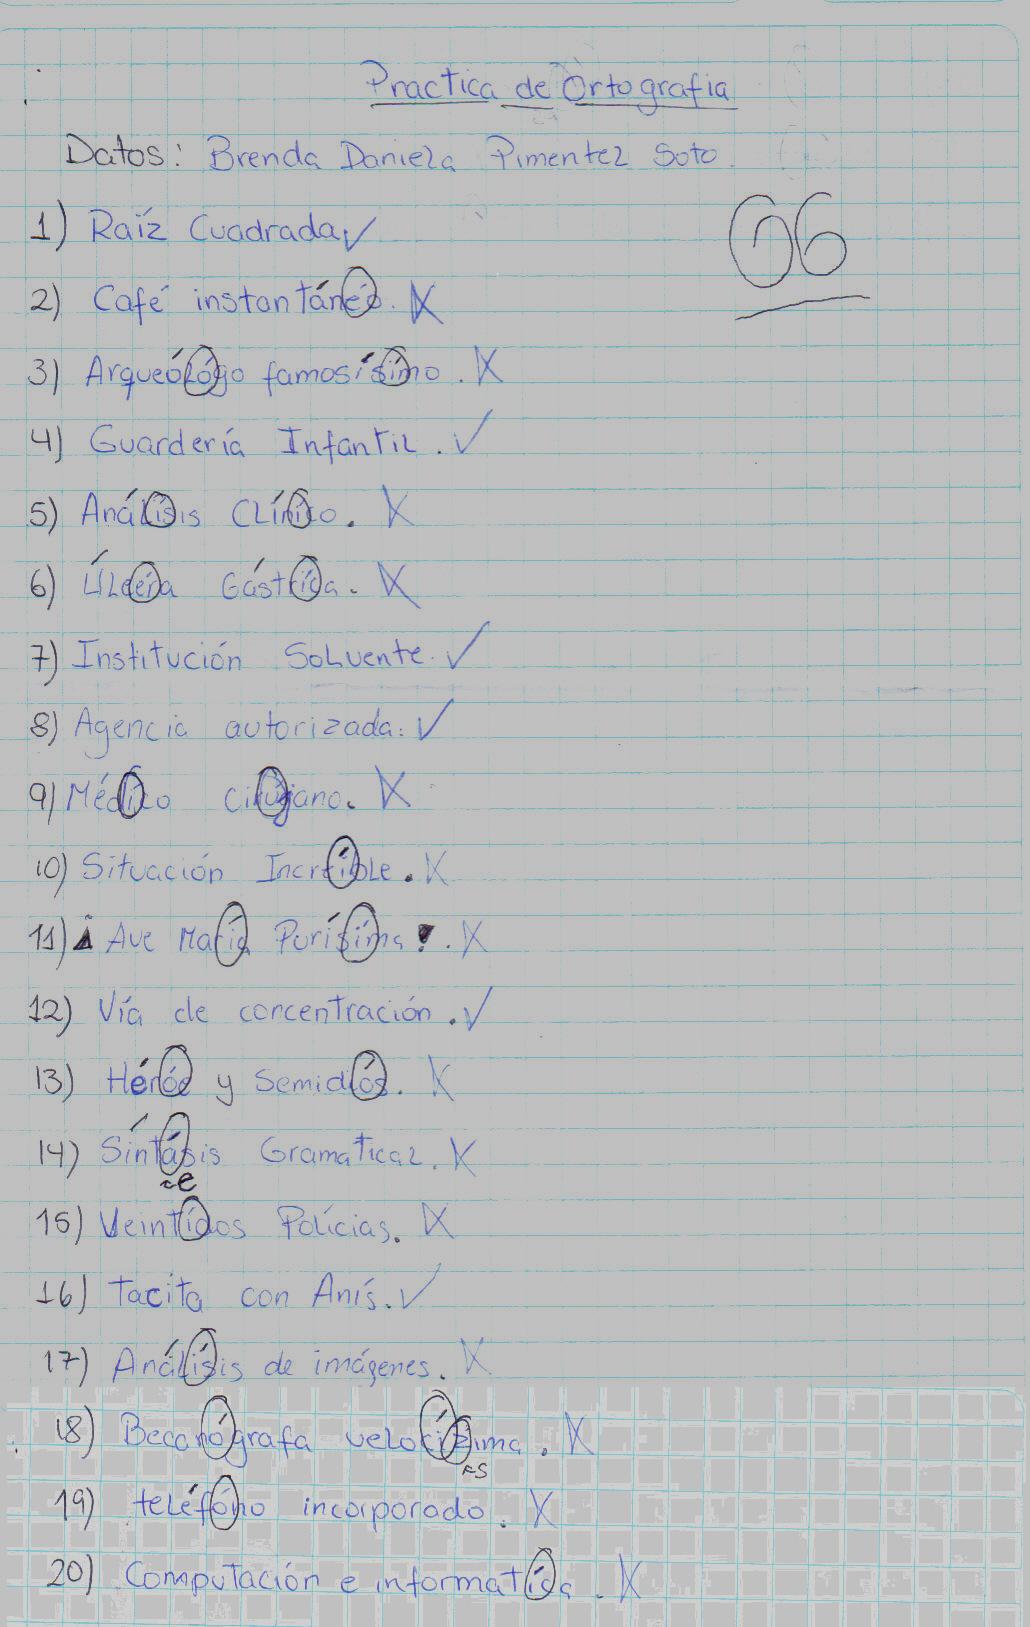 Practica de Ortografia
Datos: Brenda Daniela Pimentel Soto.
06
1) Raíz Cuadrada
2) Café instantáneó.
3) Arqueólógo famosísímo.
4) Guardería Infantil.
5) Análísis Clíníco.
6) Úlcéra Gástríca.
7) Institución Solvente.
8) Agencia autorizada.
9) Médíco cirújano.
10) Situación Increíble.
11) ¡Ave María Purísíma!.
12) Vía de concentración.
13) Héróe y Semidiós.
14) Síntásis Gramatical.
=e
15) Veintídos Polícias.
16) tacita con Anís.
17) Análísis de imágenes.
18) Becanógrafa velocízima.
=s
19) teléfóno incorporado.
20) Computación e informatíca.